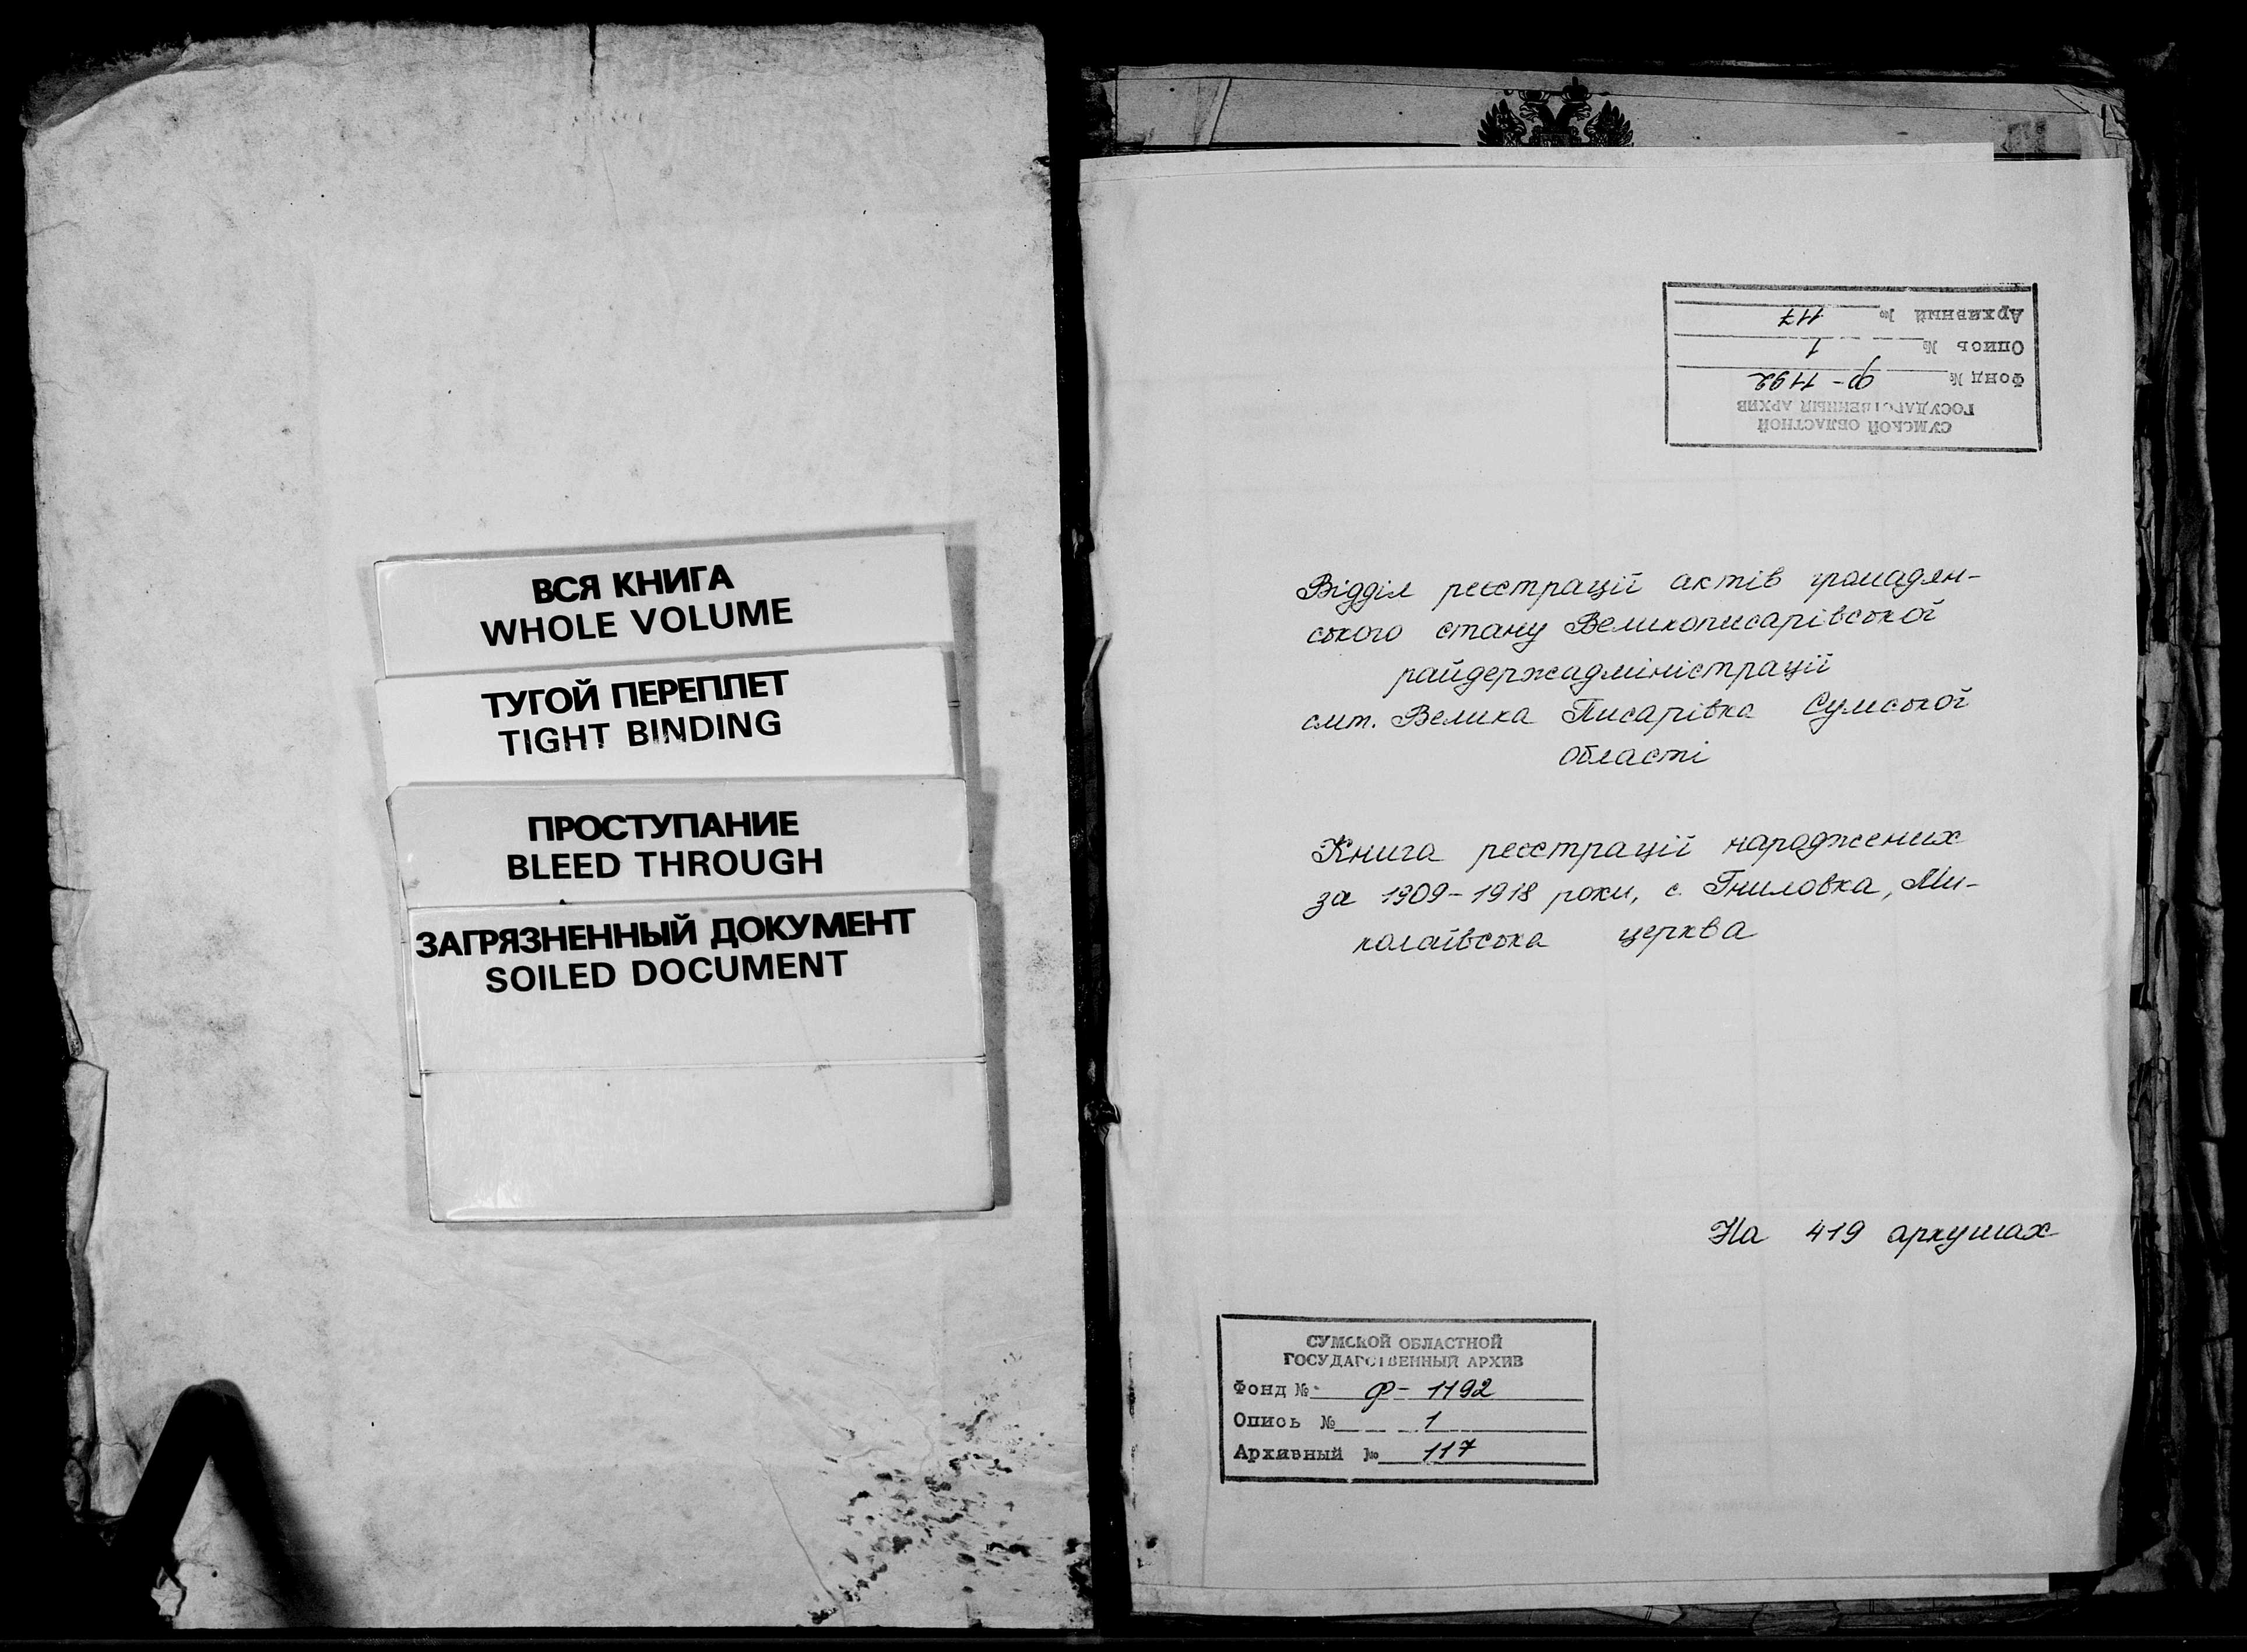 ВСЯ КНИГА
WHOLE VOLUME
ТУГОЙ ПЕРЕПЛЕТ
TIGHT BINDING
ПРОСТУПАНИЕ
BLEED THROUGH
ЗАГРЯЗНЕННЫЙ ДОКУМЕНТ
SOILED DOCUMENT
СУМСКОЙ ОБЛАСТНОЙ
ГОСУДАРСТВЕННЫЙ АРХИВ
Фонд № Ф-1192
Опись № 1
Архивный № 117
Відділ реєстрації актів громадян-
ського стану Великописарівської
райдержадміністрації
смт. Велика Писарівка Сумської
області
Книга реєстрації народжених
за 1909-1918 роки, с. Гниловка, Ми-
колаївська церква
На 419 аркушах
СУМСКОЙ ОБЛАСТНОЙ
ГОСУДАРСТВЕННЫЙ АРХИВ
Фонд № Ф-1192
Опись № 1
Архивный № 117